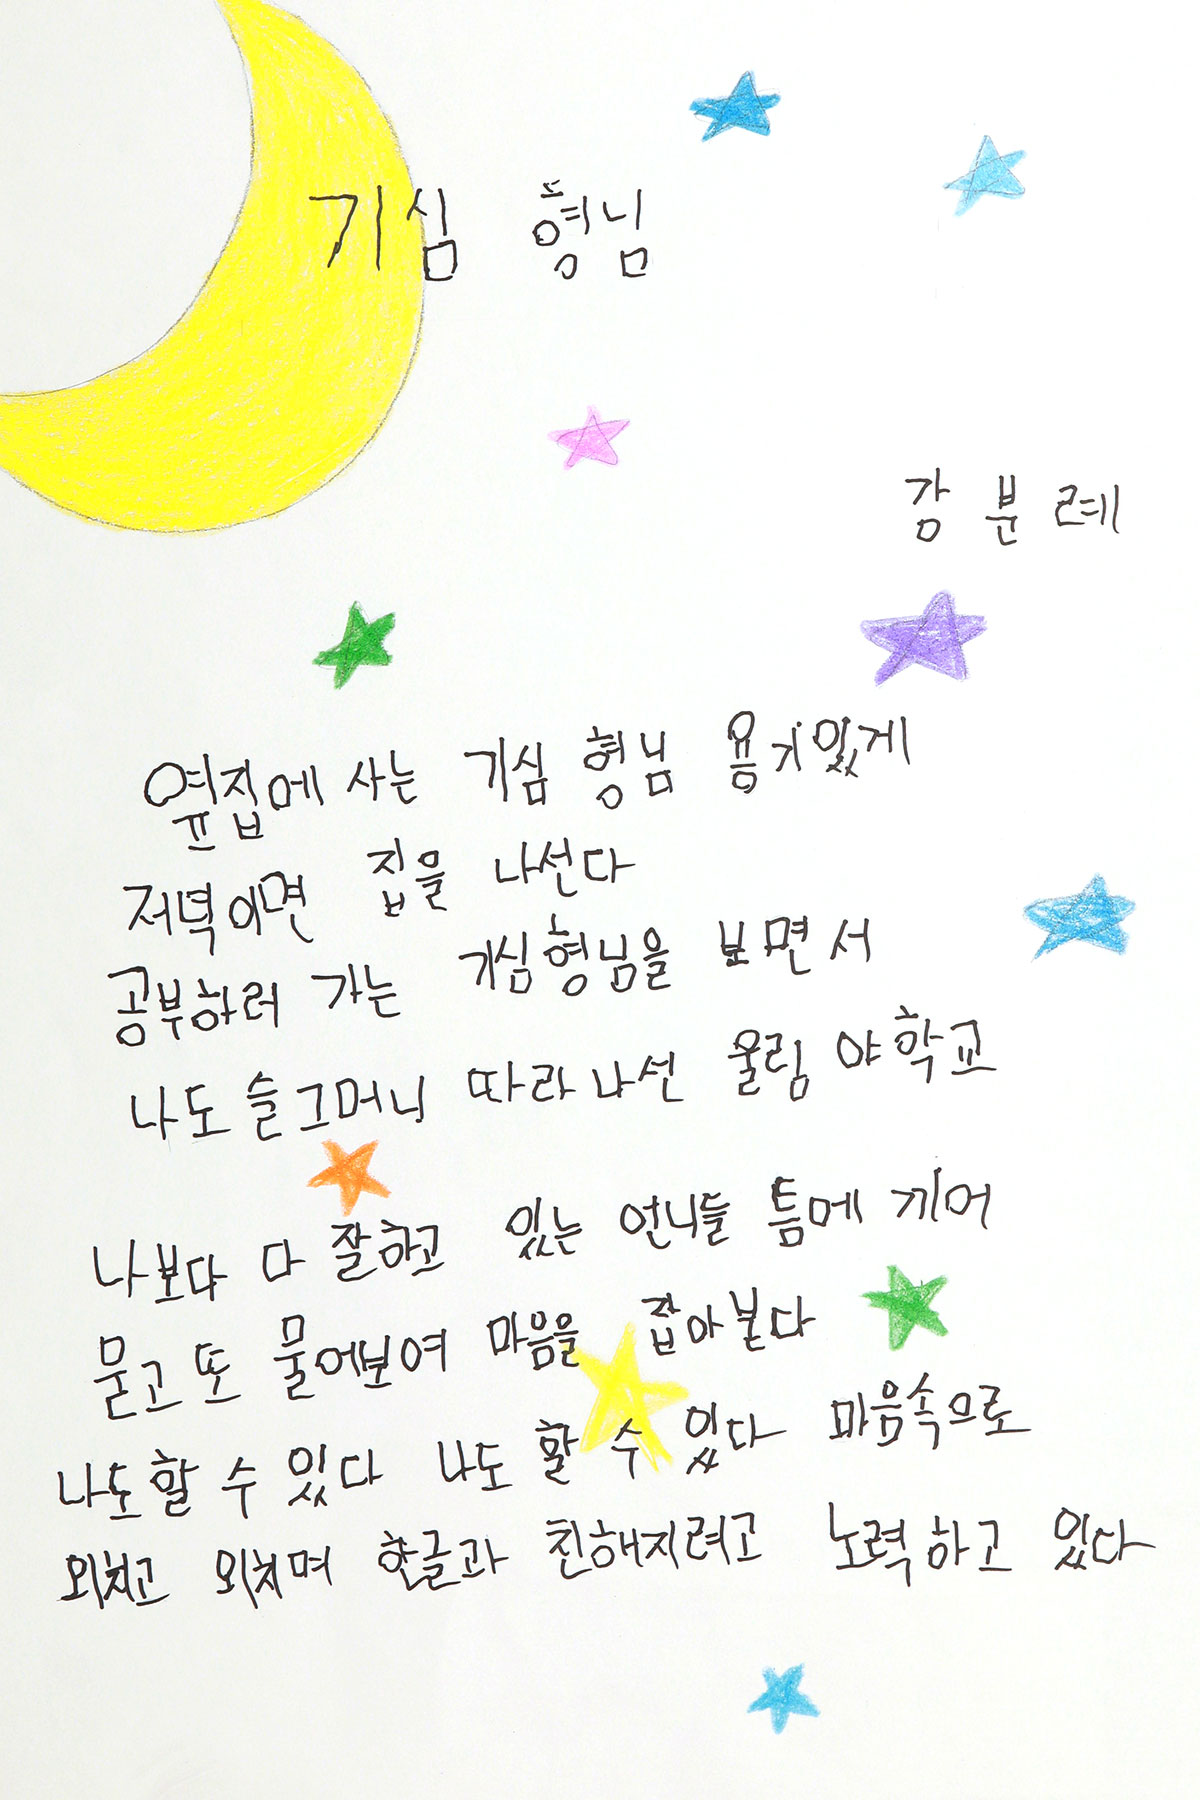 기심 형님
강분례
옆집에 사는 기심 형님 용기있게
저녁이면 집을 나선다
공부하러 가는 기심형님을 보면서
나도 슬그머니 따라나선 울림 야학교
나보다 다 잘하고 있는 언니들 틈에 끼어
묻고 또 물어보며 마음을 잡아본다
나도할 수 있다 나도 할 수 있다 마음속으로
외치고 외치며 한글과 친해지려고 노력하고 있다